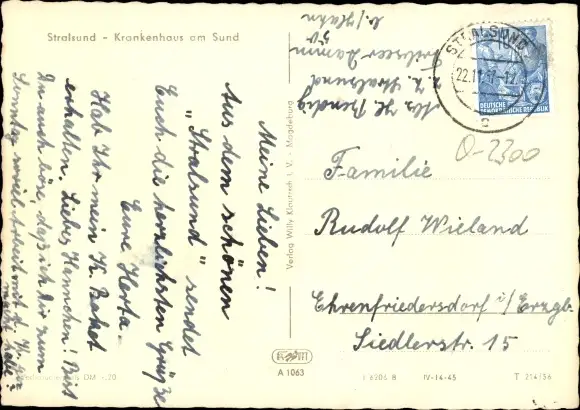 Stralsund - Krankenhaus am Sund
Meine Lieben!
Aus dem schönen
"Stralsund" sendet
Euch die herzlichsten Grüße
Eure Herta
Hab Ihr mein K. Paket
erhalten, Liebes Hannchen! Bist
Du auch böse, daß ich Dir zum
soviel Arbeit mit d.
macht habe
Verlag Willy Klautzsch i. V. - Magdeburg
z. Z. Stralsund
Tribseer Damm
50
b/Hahn
STRALSUND
22.11.57
c
DEUTSCHE
DEMOKRATISCHE REPUBLIK
O-2300
Familie
Rudolf Wieland
Ehrenfriedersdorf i/Erzgb.
Siedlerstr. 15
A 1063
IV-14-45
T 214/56